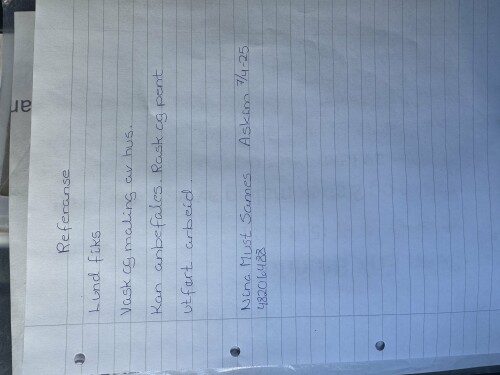 Referanse
Lund fiks
Vask og maling av hus.
Kan anbefales. Rask og pent
utført arbeid.
Nina Must Sames Askim 7/4-25
48206488